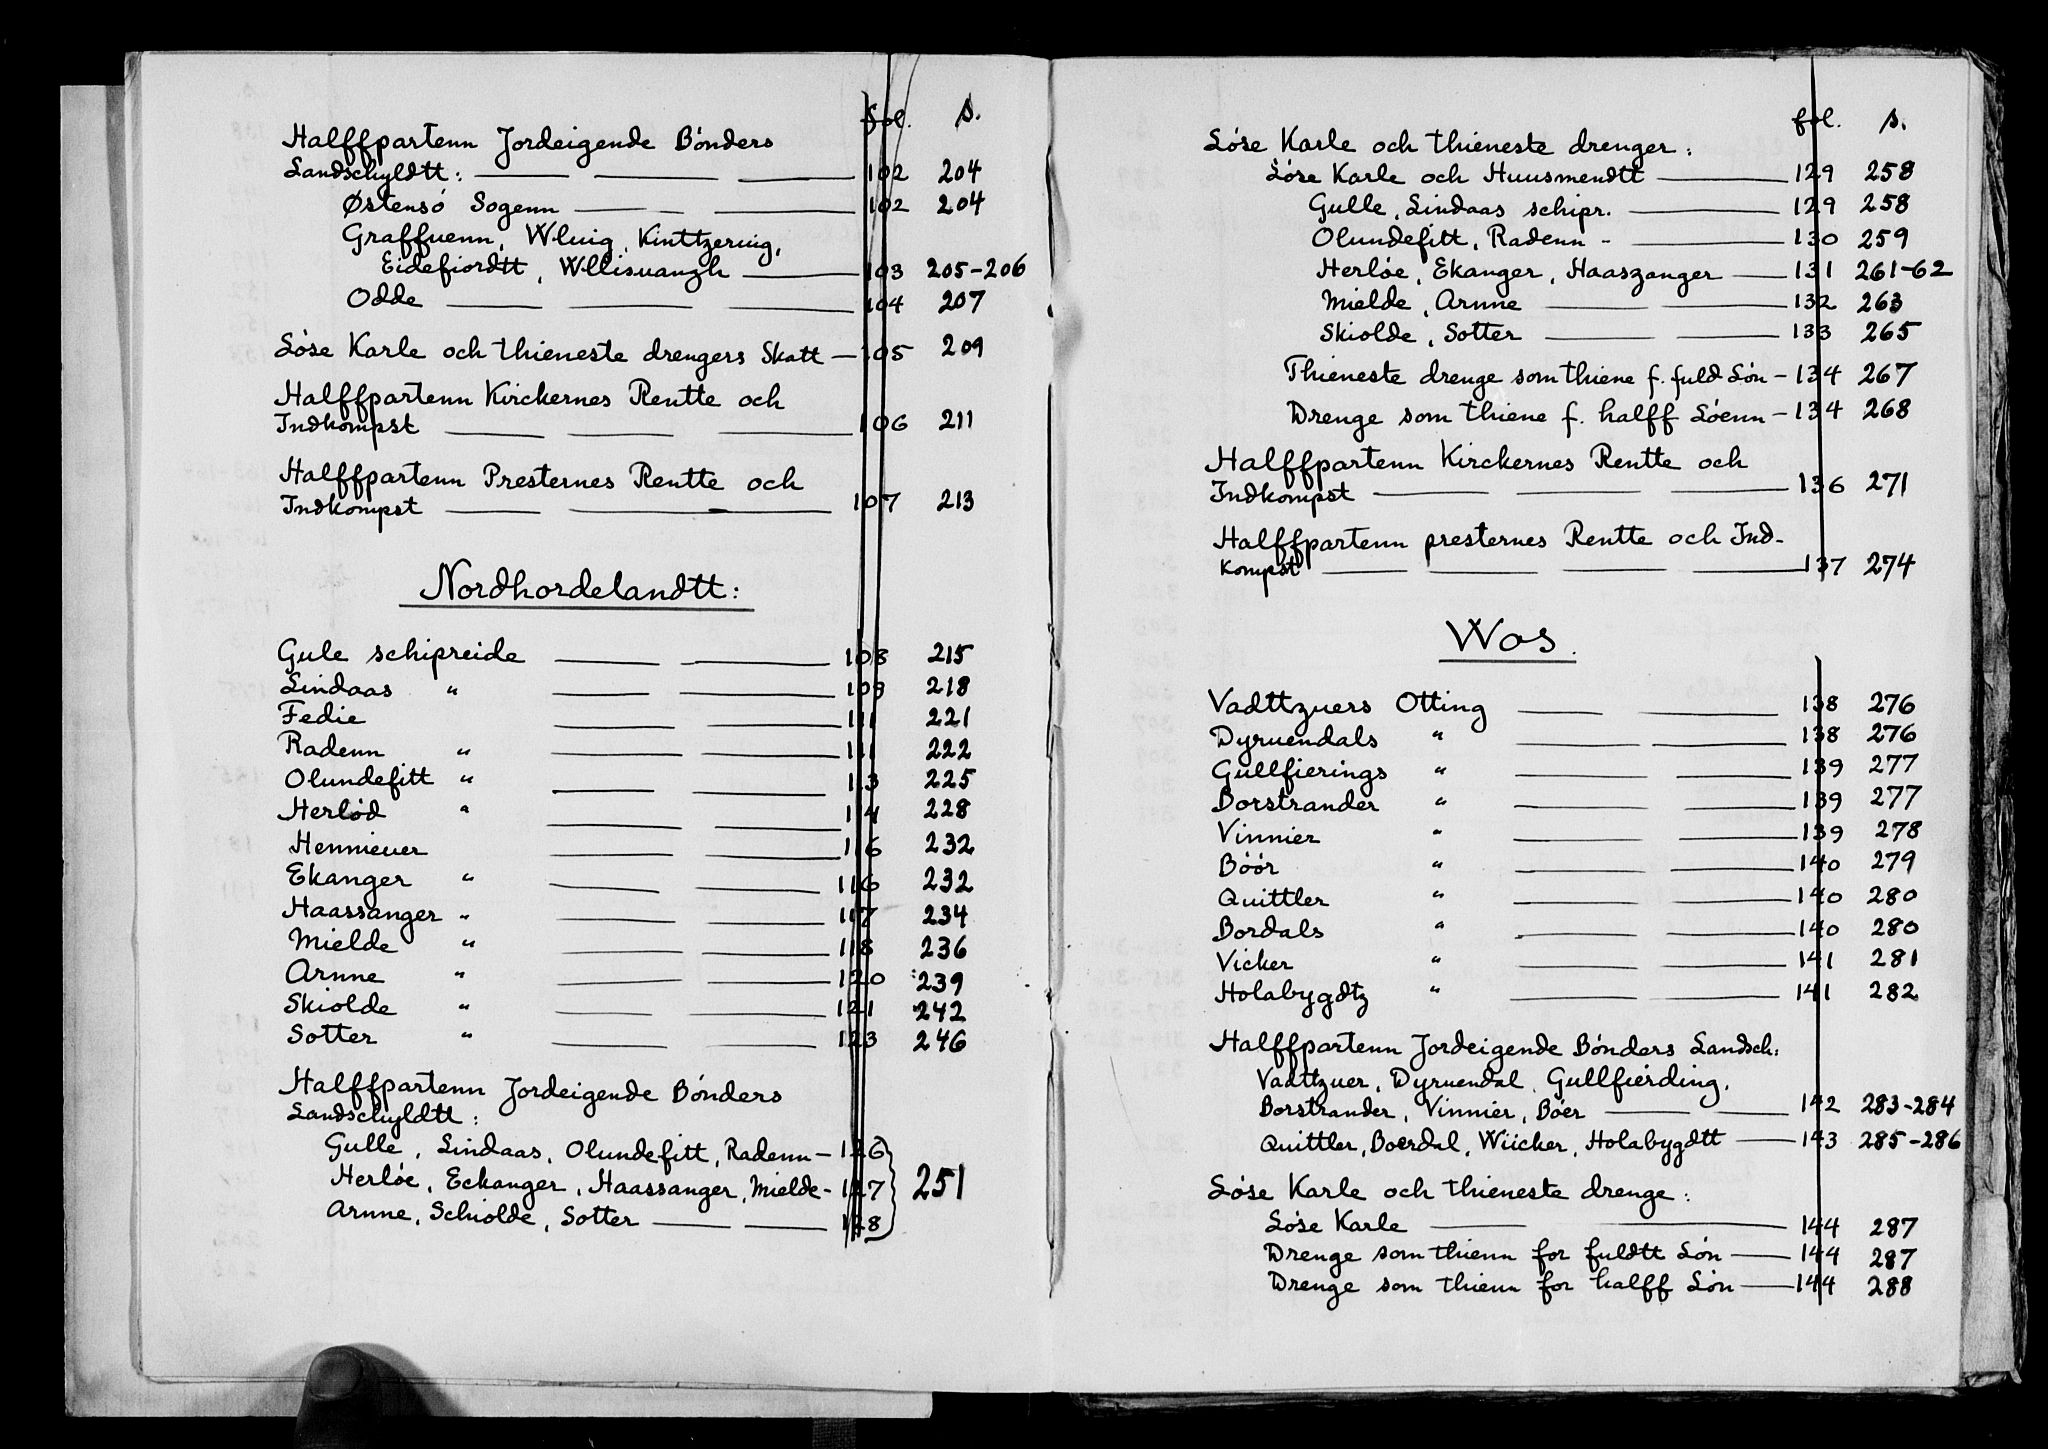 fol. s.
Halffpartenn Jordeigende Bønders
Landschyldtt: 102 204
Østensø Sogenn 102 204
Graffuenn, Wluig, Kinttzeruig,
Eidefiordtt, Wllisuangh 103 205-206
Odde 104 207
Løse Karle och thieneste drengers Skatt 105 209
Halffpartenn Kirckernes Rentte och
Indkompst 106 211
Halffpartenn Presternes Rentte och
Indkompst 107 213
Nordhordelandtt:
Gule schipreide 108 215
Lindaas " 109 218
Fedie 111 221
Radenn " 111 222
Olundefitt " 113 225
Herlød " 114 228
Hennieuer 116 232
Ekanger " 116 232
Haassanger " 117 234
Mielde " 118 236
Arnne " 120 239
Skiolde " 121 242
Sotter " 123 246
Halffpartenn Jordeigende Bønders
Landschyldtt:
Gulle, Lindaas, Olundefitt, Radenn 126
Herløe, Eckanger, Haassanger, Mielde 127 251
Arnne, Schiolde, Sotter 128
fol. s.
Løse Karle och thieneste drenger:
Løse Karle och Huusmendtt 129 258
Gulle, Lindaas schipr. 129 258
Olundefitt, Radenn - 130 259
Herløe, Ekanger, Haaszanger 131 261-62
Mielde, Arnne 132 263
Skiolde, Sotter 133 265
Thieneste drenge som thiene f. fuld Løn 134 267
Drenge som thiene f. halff Løenn 134 268
Halffpartenn Kirckernes Rentte och
Indkompst 136 271
Halffpartenn presternes Rentte och Ind-
kompst 137 274
Wos.
Vadttzuers Otting 138 276
Dyruendals " 138 276
Gullfierings " 139 277
Borstrander " 139 277
Vinnier " 139 278
Bøør " 140 279
Quittler " 140 280
Bordals " 140 280
Vicker " 141 281
Holabygdtz " 141 282
Halffpartenn Jordeigende Bønders Landsch:
Vadttzuer, Dyruendal, Gullfierding,
Borstrander, Vinnier, Bøer 142 283-284
Quittler, Boerdal, Wiicker, Holabygdtt 143 285-286
Løse Karle och thieneste drenge:
Løse Karle 144 287
Drenge som thienn for fuldtt Løn 144 287
Drenge som thienn for halff Løn 144 288